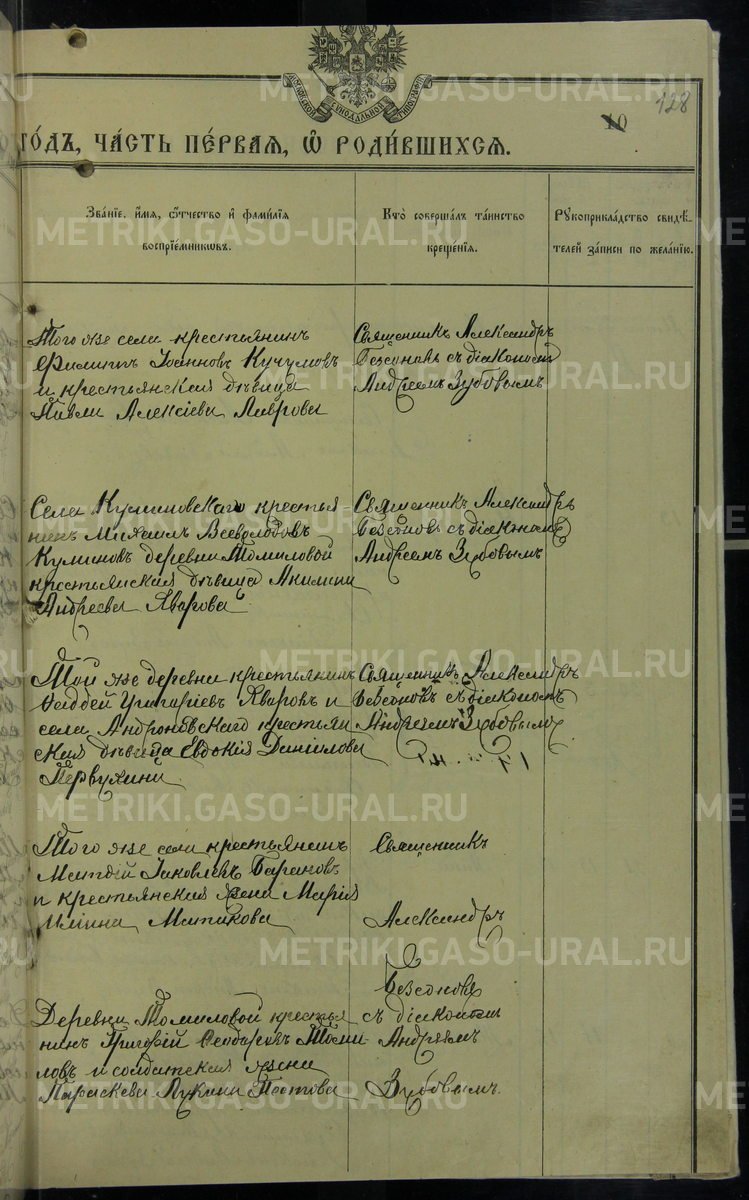 128
10
ГОДЪ, ЧАСТЬ ПЕРВАЯ, Ѿ РОДИВШИХСЯ.
Званіе, имя, отчество и фамилія
воспріемниковъ.
Кто совершалъ таинство
крещенія.
Рукоприкладство свидѣ-
телей записи по желанію.
Того же села крестьянинъ
Филиппъ Іоанновъ Кучумовъ
и крестьянская дѣвица
Павла Алексіева Лаврова
Священникъ Александръ
Безсоновъ съ діакономъ
Андреемъ Зубовымъ
Села крестья-
нинъ Михаилъ Всеволодовъ
деревни Томиловой
крестьянская дѣвица
Андреева Яварова
Священникъ Александръ
Безсоновъ съ діакономъ
Андреемъ Зубовымъ
Той же деревни крестьянинъ
Фаддей Григоріевъ Яваровъ и
села Андроновскаго крестьян
ская дѣвица Евдокія Даніилова
Первухина
Священникъ Александръ
Безсоновъ съ діакономъ
Андреемъ Зубовымъ
Того же села крестьянинъ
Матѳій Іаковлевъ Барановъ
и крестьянская жена Марія
Ильина
Священникъ
Александръ
Безсоновъ
съ діакономъ
Андреемъ
Зубовымъ.
Деревни Томиловой крестья
нинъ Григорій Ѳеодоровъ Томи-
ловъ и солдатская жена
Параскева Лукина Постова
METRIKI.GASO-URAL.RU